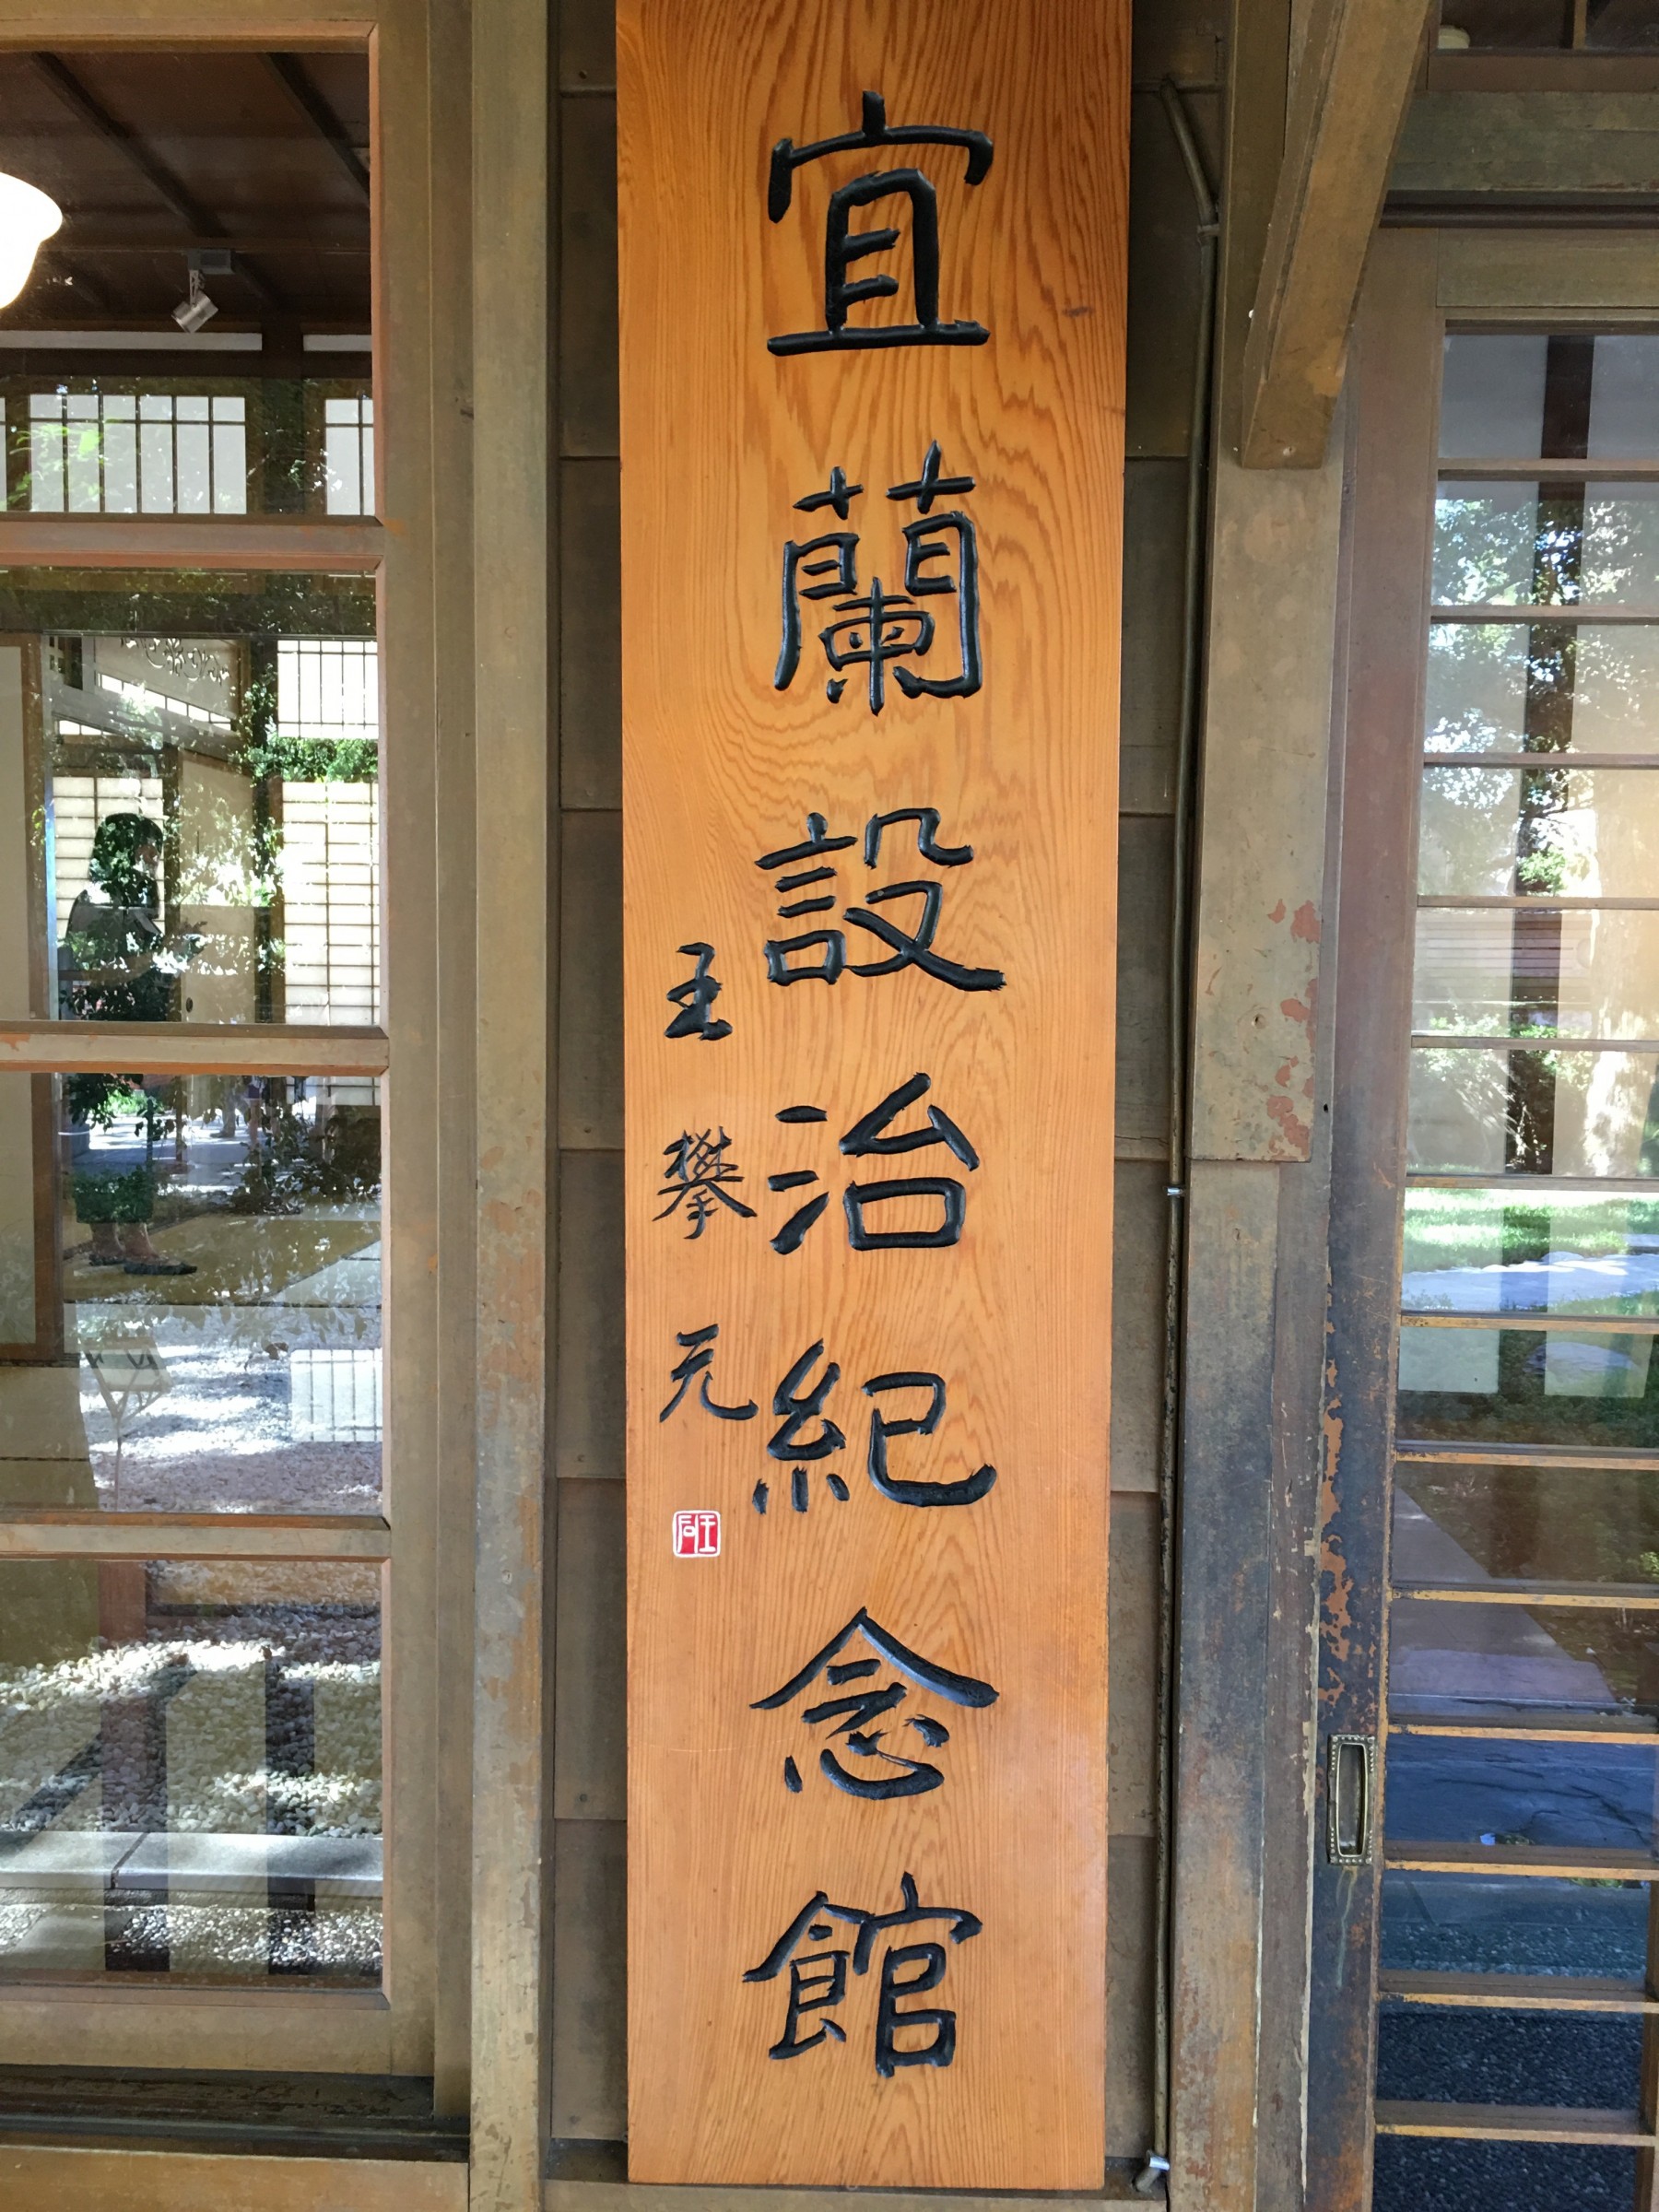 宜蘭設治紀念館
王攀元